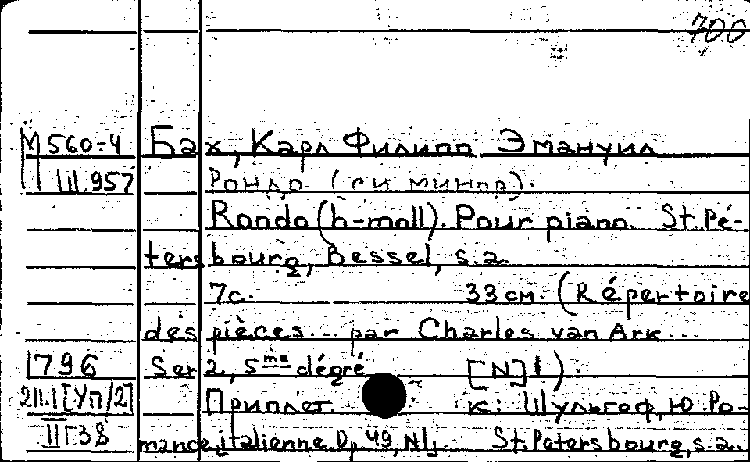 700
М 560-4 Бах, Карл Филипп Эмануил
III.957 Рондо (си минор).
Rondo (h-moll). Pour piano. St. Pé-
tersbourg, Bessel, s.a.
7с. 33 см. (Répertoire
des pièces... par Charles van Ark...
1796 Ser 2, 5me dégré [N]1).
2111.1 [Уп/2] Приплет. к: Шульгоф, Ю. Ро-
IIГ38 mance italienne. D, 49, N1. St. Petersbourg, s.a.